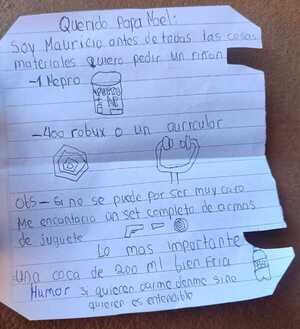 Querido Papa Noel:
Soy Mauricio antes de todas las cosas
materiales quiero pedir un riñon
-1 Nepro
-400 robux o un auricular
Obs-Si no se puede por ser muy caro
Me encantaria un set completo de armas
de juguete
Lo mas importante
-una coca de 200 ml bien Fria
Humor si quieren darme denme sino
quieren es entendible